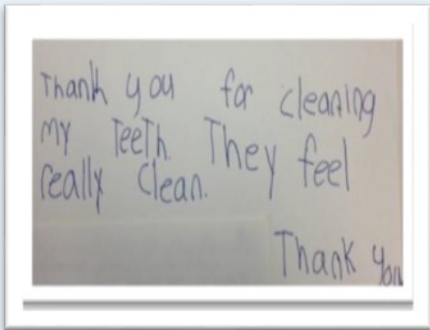 Thank you for cleaning
my Teeth. They feel
really clean.
Thank you